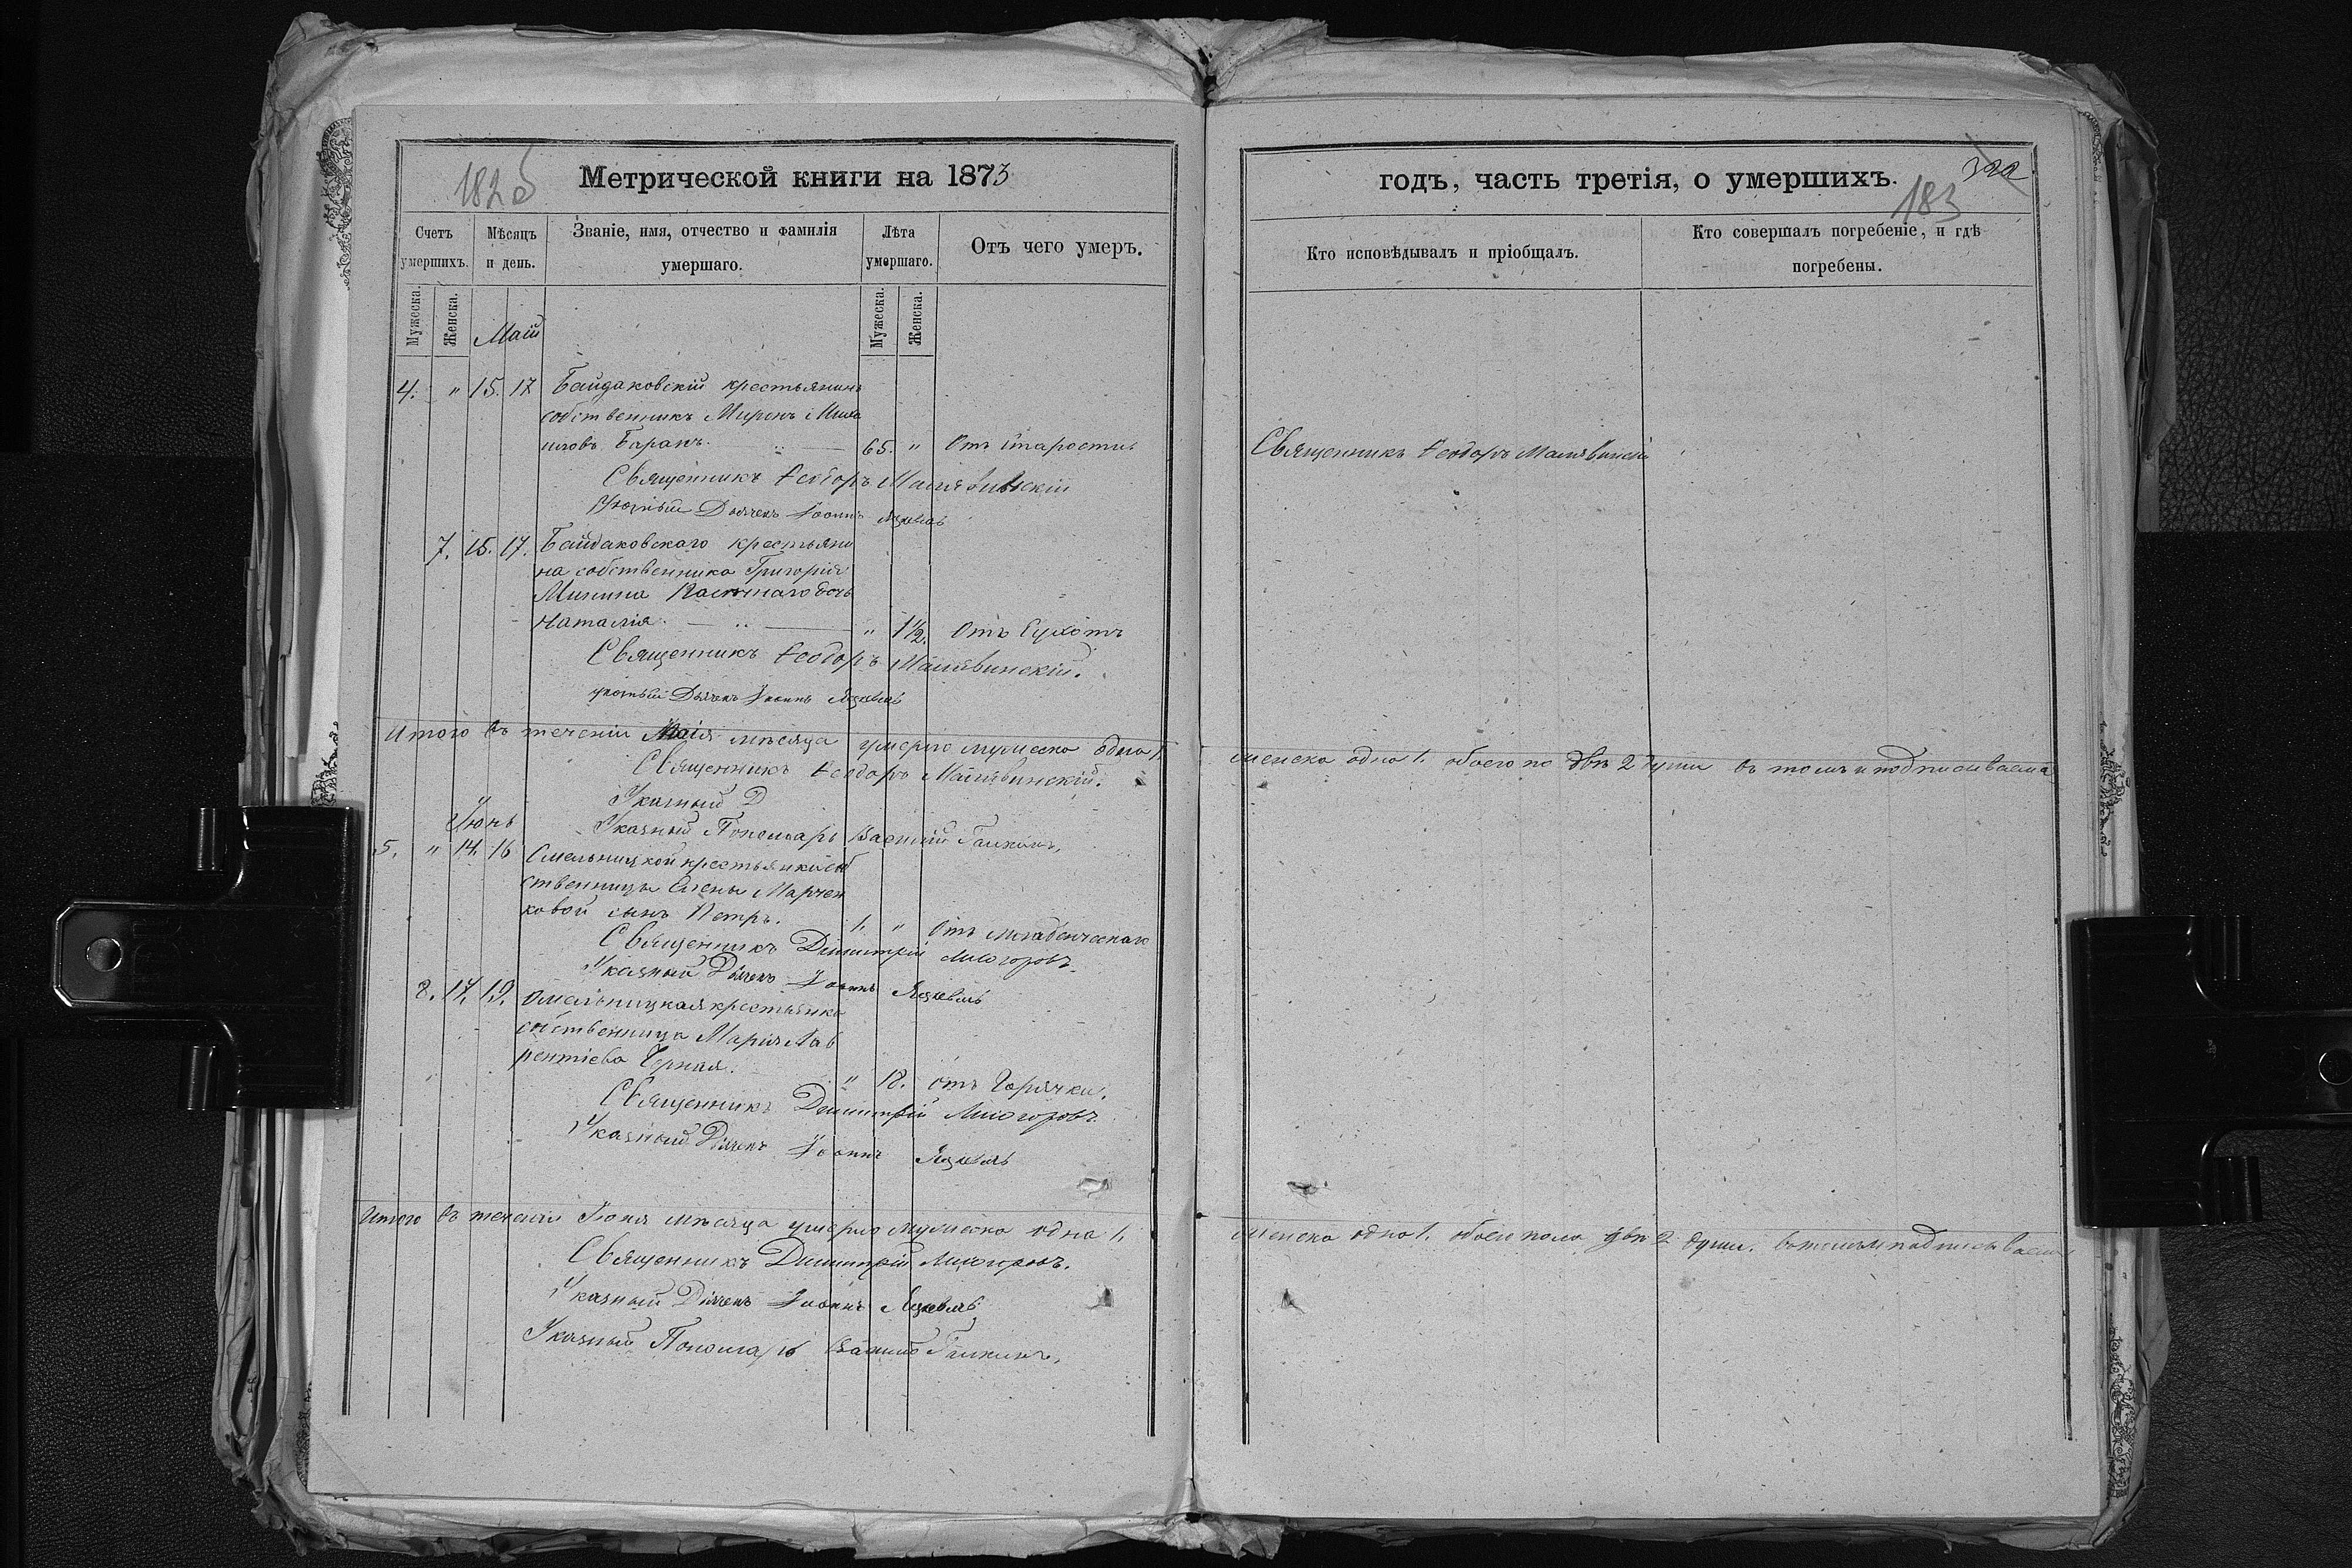 182 об
Метрической книги на 1873
Счетъ умершихъ.
Мѣсяцъ и день.
Званіе, имя, отчество и фамилія умершаго.
Лѣта умершаго.
Отъ чего умеръ.
Мужеска.
Женска.
Май
Мужеска.
Женска.
4. " 15. 17 Байдаковскій крестьянинъ
собственникъ Миронъ Миха
иловъ Баранъ. 65. " Отъ старости
Священникъ Ѳеодоръ Малявинскій
Указный Дьячекъ Іоаннъ
7. 15. 17. Байдаковскаго крестьяни
на собственника Григорія
Минина дочь
Наталія. " 1½. Отъ Сухотъ
Священникъ Ѳеодоръ Малявинскій.
Указный Дьячекъ Іоаннъ
Итого въ теченіи Маія мѣсяца умерло мужеска одна 1.
Священникъ Ѳеодоръ Малявинскій.
Указный Д
Іюнь
Указный Пономарь Василій Галкинъ,
5. " 14. 16 Омельницкой крестьянки соб
ственницы Елены Марчен
ковой сынъ Петръ. 1. " Отъ младенческаго
Священникъ Димитрій
Указный Дьячекъ Іоаннъ
8. 17. 19. Омельницкая крестьянка
собственница Марія Лав
рентіева Черная. " 18. отъ Горячки.
Священникъ Димитрій
Указный Дьячекъ Іоаннъ
Итого въ теченіи Іюня мѣсяца умерло мужеска одна 1.
Священникъ Димитрій
Указный Дьячекъ Іоаннъ
Указный Пономарь Василій Галкинъ,
годъ, часть третія, о умершихъ.
322
183
Кто исповѣдывалъ и пріобщалъ.
Кто совершалъ погребеніе, и гдѣ погребены.
Священникъ Ѳеодоръ Малявинскій
женска одна 1. обоего по двѣ 2 души въ томъ и подписываемся
женска одна 1. обоего пола двѣ 2 души. въ томъ и подписываемся